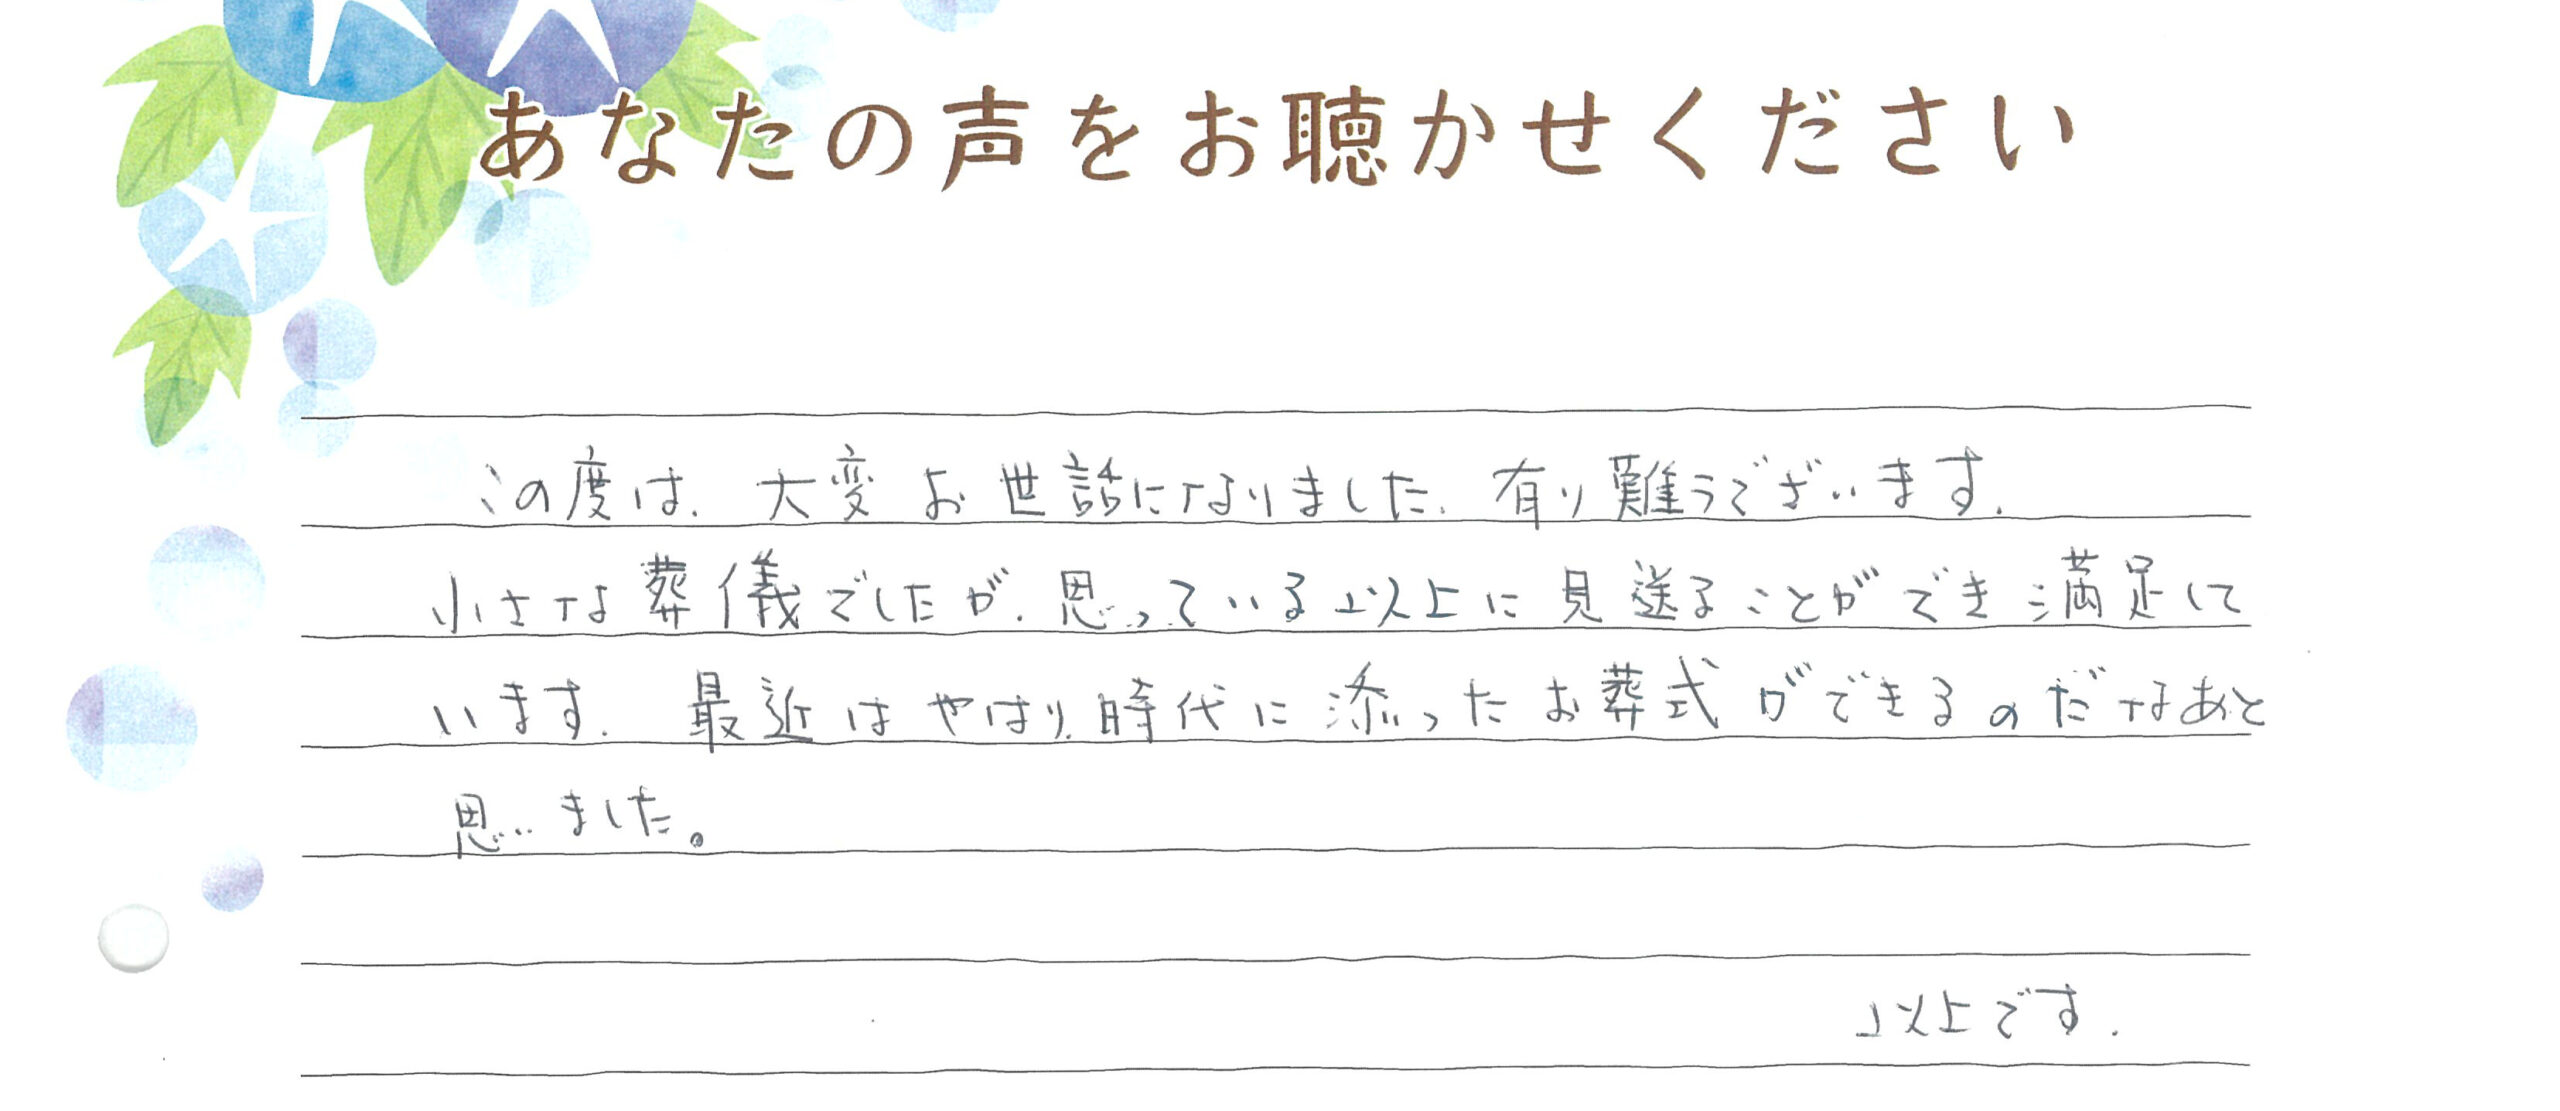 あなたの声をお聴かせください
この度は、大変お世話になりました。有り難うございます。
小さな葬儀でしたが、思っている以上に見送ることができ満足して
います。最近はやはり、時代に添ったお葬式ができるのだなあと
思いました。
以上です。